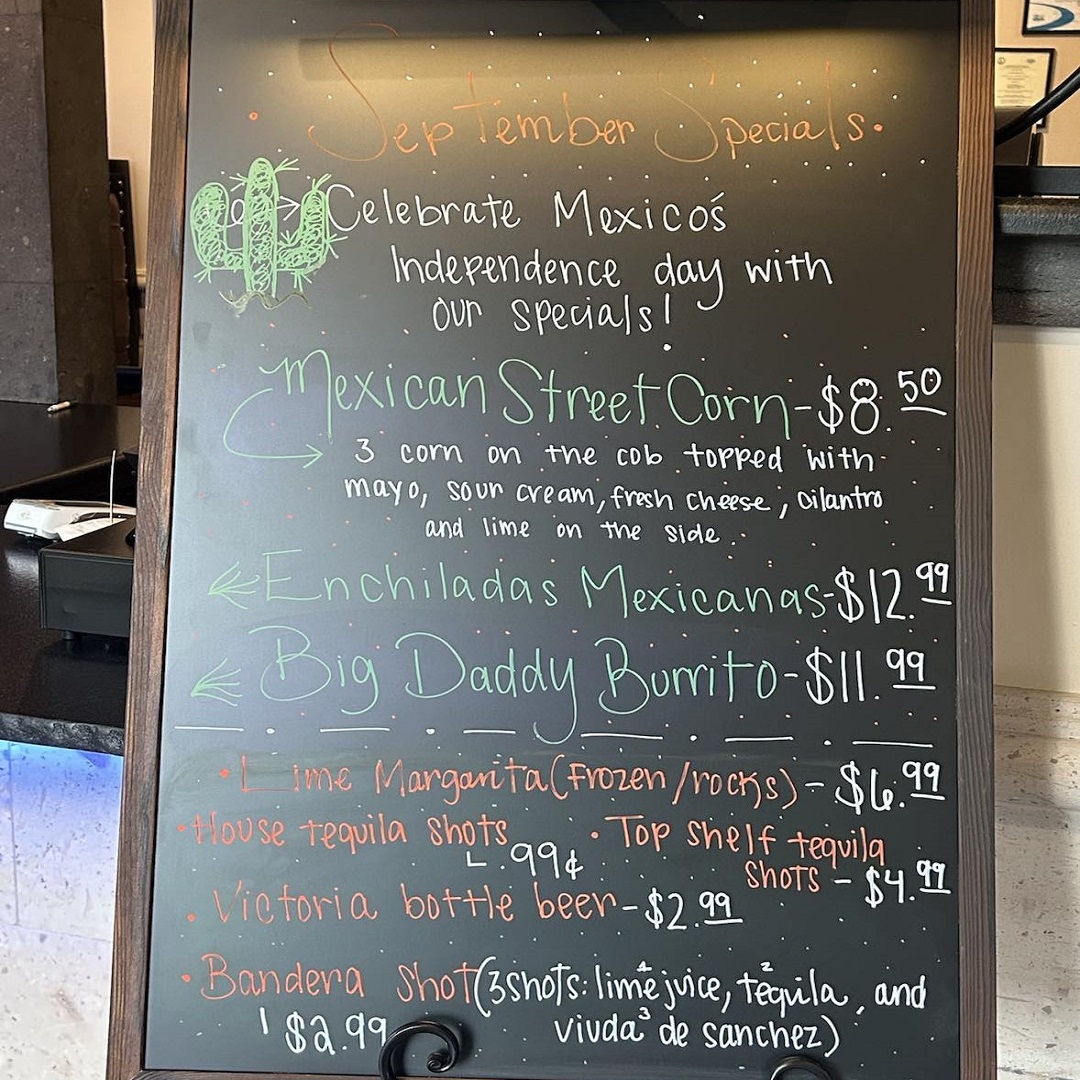 September Specials
Celebrate Mexico's
Independence day with
our specials!
Mexican Street Corn-$8.50
3 corn on the cob topped with
mayo, sour cream, fresh cheese, cilantro
and lime on the side.
Enchiladas Mexicanas-$12.99
Big Daddy Burrito-$11.99
• Lime Margarita (Frozen/rocks) - $6.99
• House tequila shots
.99¢
• Top shelf tequila
shots - $4.99
• Victoria bottle beer - $2.99
• Bandera Shot (3 shots: lime¹ juice, tequila², and
$2.99
viuda³ de sanchez)